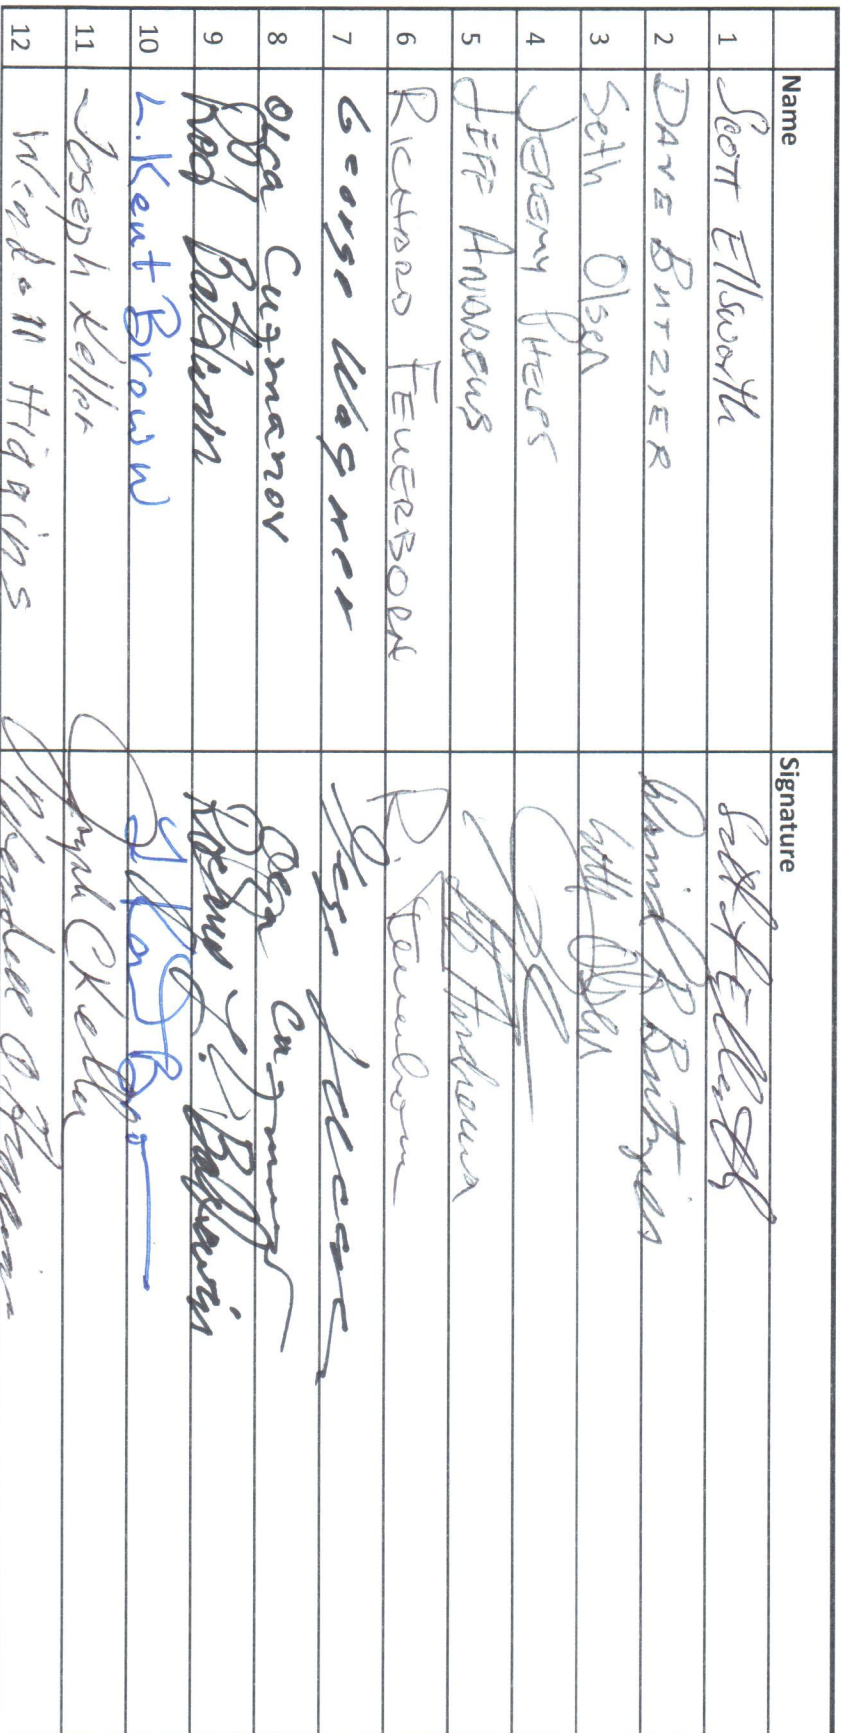 Name Signature
1 Scott Ellsworth
2 DAVE BUTZIER David R Butzier
3 Seth Olsen Seth Olsen
4 JEREMY PHELPS
5 JEFF ANDREWS Jeff Andrews
6 RICHARD FEUERBORN R. Feuerborn
7 George Wagner
8 Olga Cuzmanov Olga
9 Rod Baldwin Baldwin
10 L. Kent Brown
11 Joseph Keller Joseph C Keller
12 Wendell Higgins